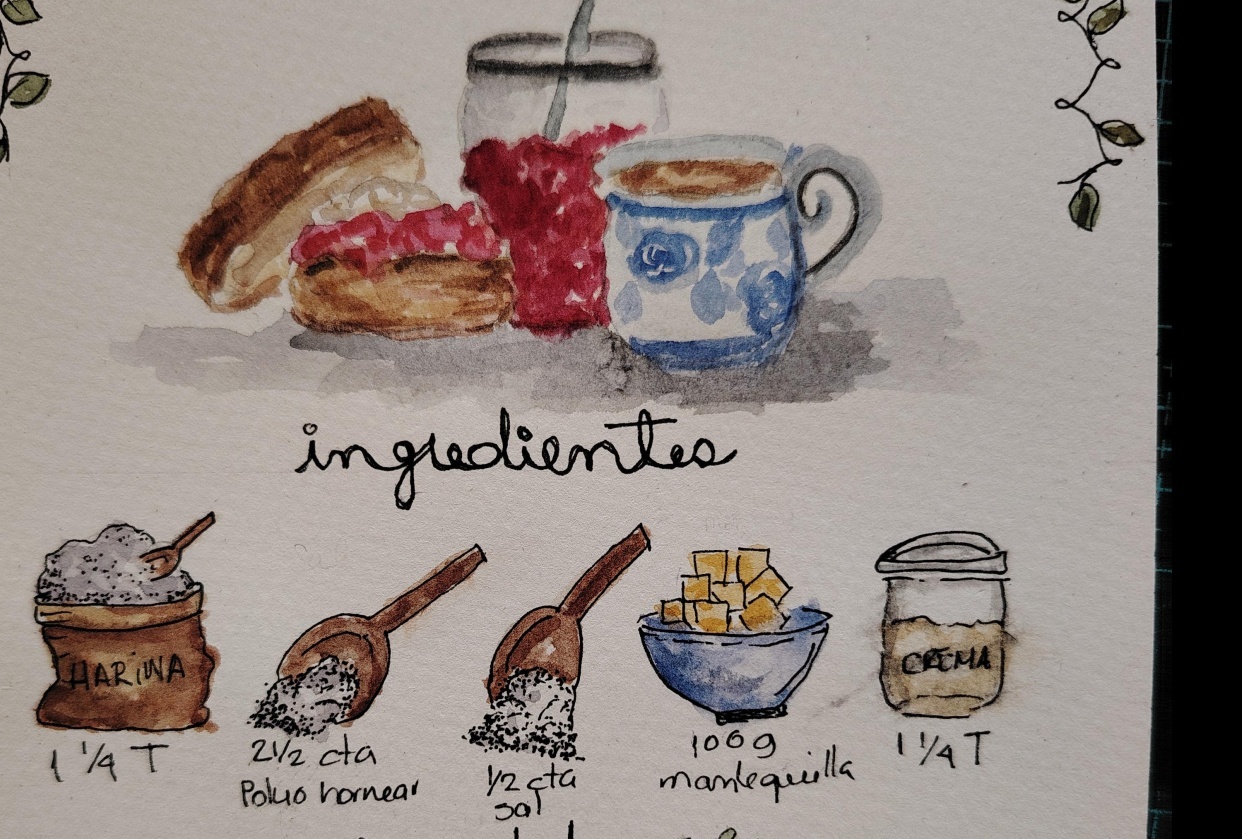 ingredientes
HARINA
CREMA
1 1/4 T
2 1/2 cta
Polvo hornear
1/2 cta
sal
100g
mantequilla
1 1/4 T